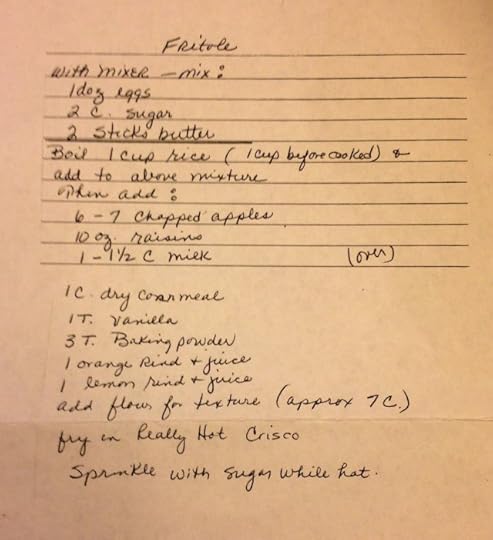 Fritole
with mixer - mix:
1 doz eggs
2 c. sugar
2 sticks butter
Boil 1 cup rice (1 cup before cooked) &
add to above mixture
Then add:
6 - 7 chopped apples
10 oz. raisins
1 - 1½ C milk (over)
1 C. dry cornmeal
1 T. vanilla
3 T. Baking powder
1 orange rind + juice
1 lemon rind + juice
add flour for texture (approx 7 C.)
fry in Really Hot Crisco
Sprinkle with sugar while hot.